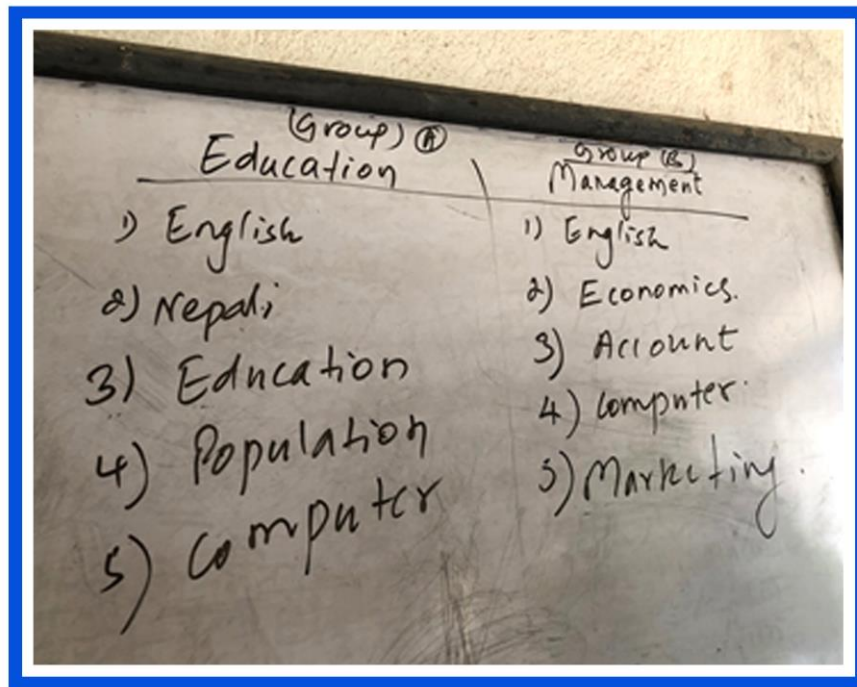 (Group) Ⓐ
Education
1) English
2) Nepali
3) Education
4) Population
5) Computer
Group (B)
Management
1) English
2) Economics.
3) Account
4) Computer.
5) Marketing.